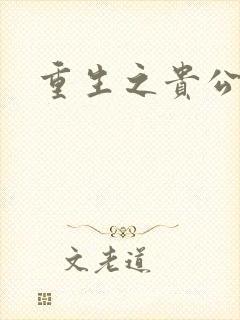 重生之貴公
文老道